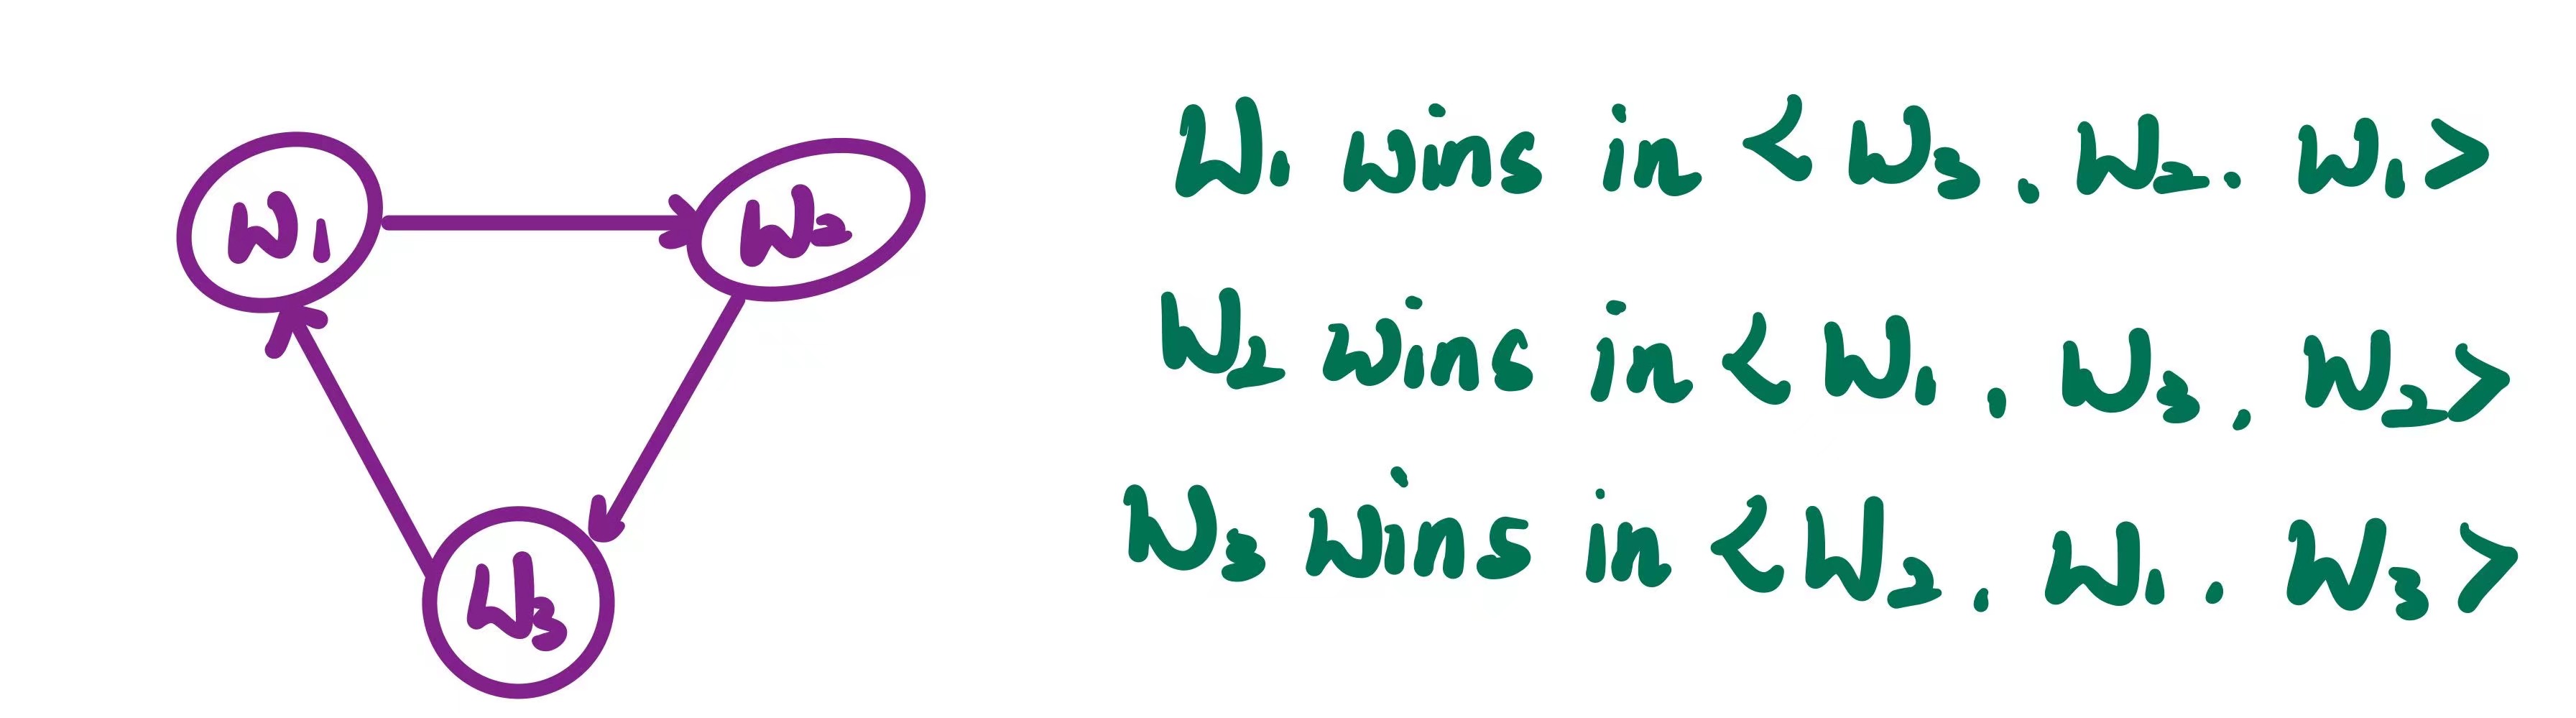 W1
W2
W3
W1 wins in <W3, W2, W1>
W2 wins in <W1, W3, W2>
W3 wins in <W2, W1, W3>